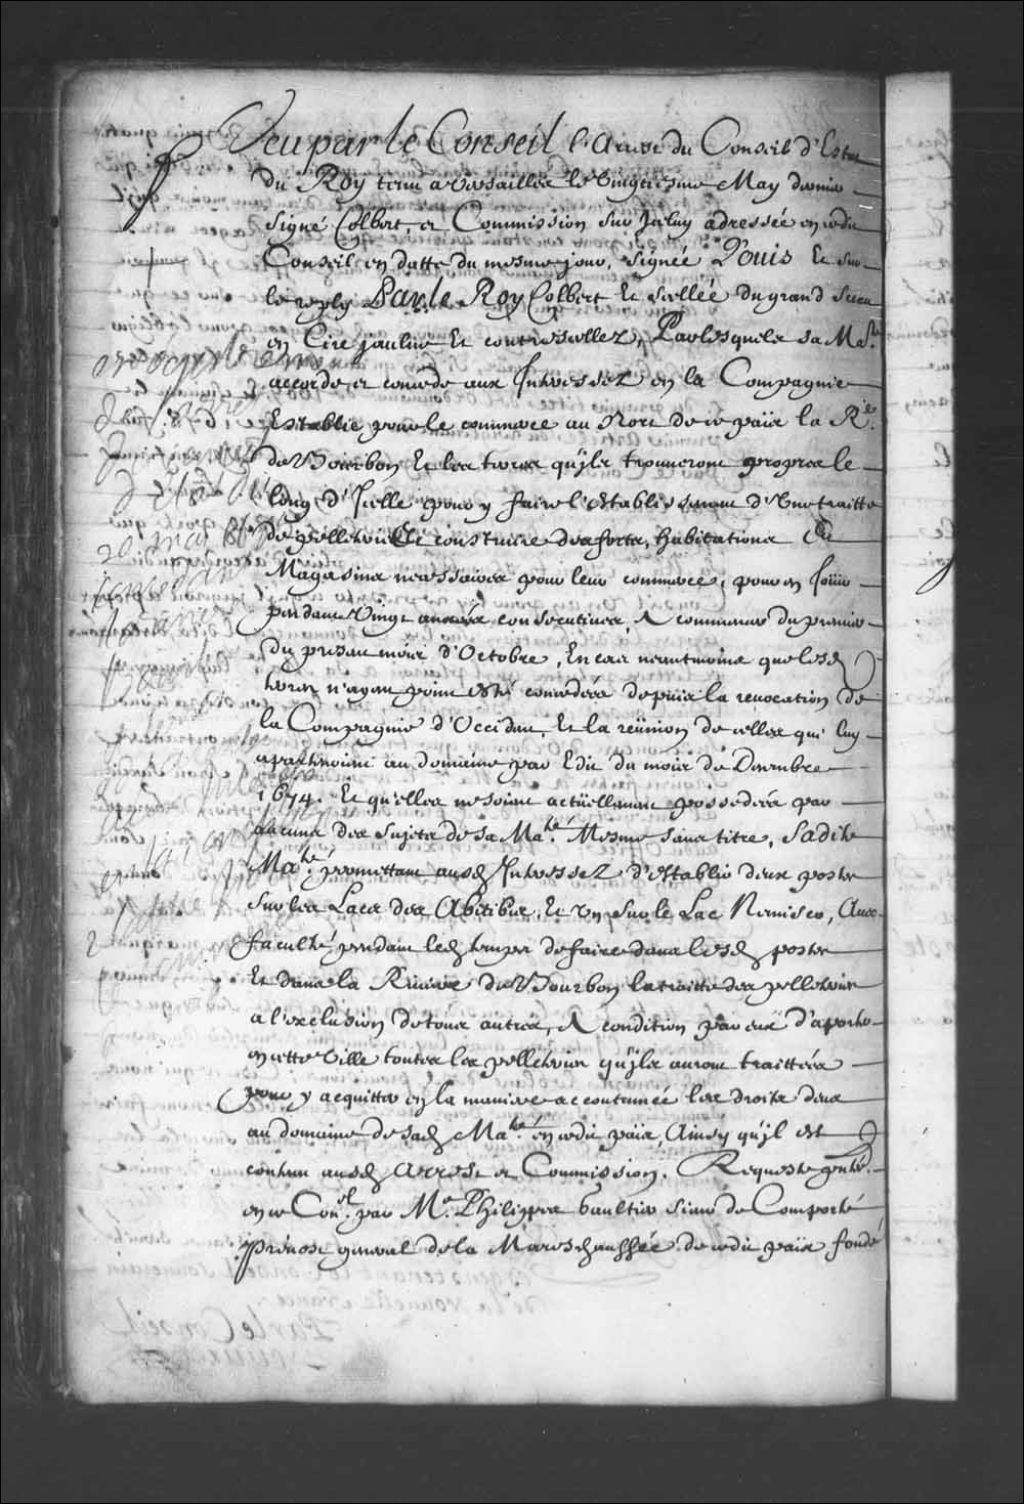 Veu par le Conseil l'Arrest du Conseil d'Estat
du Roy tenu a Versailles le vingtiesme May dernier
signé Colbert, et Commission sur Jceluy adressée en cedit
Conseil en datte du mesme jour, signée Louis Et sur
le reply Par le Roy Colbert Et scellée du grand sceau
en Cire jaulne Et contrescellez, Par lesquels sa Ma.té
accorde et concede aux Jnteressez en la Compagnie
Establie pour le commerce au Nort de ce païs la R.re
de Bourbon Et les terres qu'jls trouueront propres le
long d'Jcelle pour y faire l'establissement d'Vne traitte
de pelleteries Et construire des forts, habitations Et
Magasins necessaires pour leur commerce, pour en Joüir
pendant Vingt années consecutiues, A commencer du premier
du present mois d'Octobre, En cas neantmoins que lesd
terres n'ayent point esté concedées depuis la reuocation de
la Compagnie d'Occident, Et la reünion de celles qui luy
apartenoient au domaine par Edit du mois de Decembre
1674. Et qu'elles ne soient actüellement possedées par
aucuns des sujets de sa Ma.té Mesme sans titre, Sadite
Ma.té promettant ausd Jnteressez d'establir deux postes
sur les Lacs des Abitibis, Et Vn sur le Lac Nemisco, Auec
faculté pendant led temps de faire dans lesd postes
Et dans la Riuiere de Bourbon la traitte des pelleteries
a l'exclusion de tous autres, A condition par eux d'aporter
en cette Ville toutes les pelleteries qu'jls auront traittées
pour y acquitter en la maniere accoutumée les droits deus
au domaine de sad Ma.té en cedit païs, Ainsy qu'jl est
contenu ausd Arrest et Commission. Requeste pnté.
en ce Con.el par M.e Philippes Gaultier sieur de Comporté
Preuost general de la Mareschaussée de cedit païs fondé